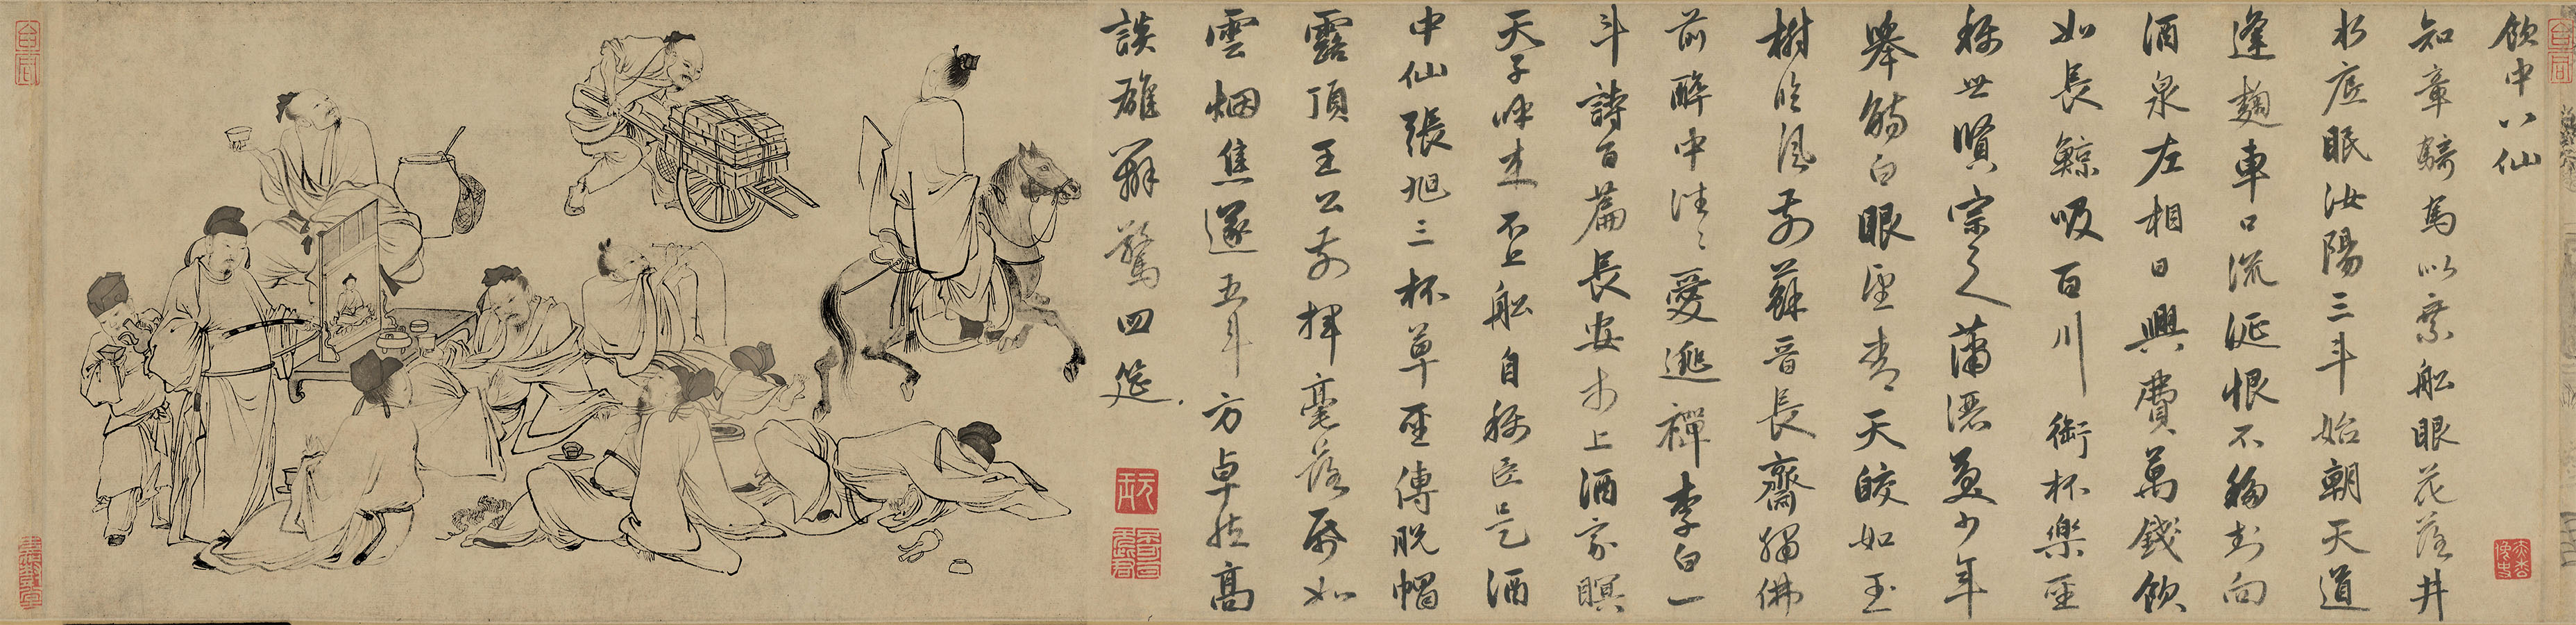 飲中八仙
知章騎馬似乘船眼花落井
水底眠汝陽三斗始朝天道
逢麴車口流涎恨不移封向
酒泉左相日興費萬錢飲
如長鯨吸百川銜杯樂聖
稱世賢宗之蕭灑美少年
舉觴白眼望青天皎如玉
樹臨風前蘇晉長齋繡佛
前醉中往々愛逃禪李白一
斗詩百篇長安市上酒家眠
天子呼來不上船自稱臣是酒
中仙張旭三杯草聖傳脫帽
露頂王公前揮毫落紙如
雲烟焦遂五斗方卓然高
談雄辯驚四筵